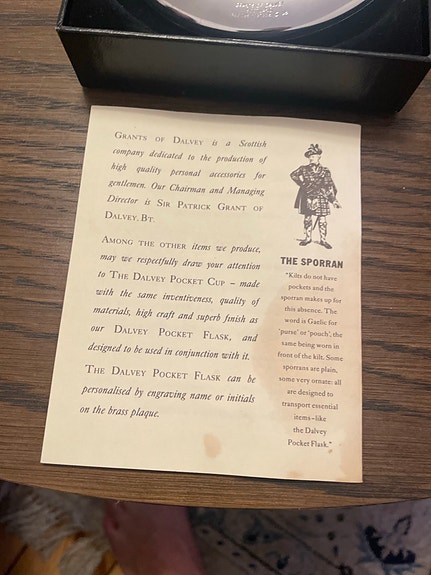 GRANTS OF DALVEY is a Scottish
company dedicated to the production of
high quality personal accessories for
gentlemen. Our Chairman and Managing
Director is SIR PATRICK GRANT OF
DALVEY. BT.
AMONG THE OTHER items we produce,
may we respectfully draw your attention
to THE DALVEY POCKET CUP – made
with the same inventiveness, quality of
materials, high craft and superb finish as
our DALVEY POCKET FLASK, and
designed to be used in conjunction with it.
THE DALVEY POCKET FLASK can be
personalised by engraving name or initials
on the brass plaque.
THE SPORRAN
"Kilts do not have
pockets and the
sporran makes up for
this absence. The
word is Gaelic for
'purse' or 'pouch', the
same being worn in
front of the kilt. Some
sporrans are plain,
some very ornate: all
are designed to
transport essential
items–like
the Dalvey
Pocket Flask."